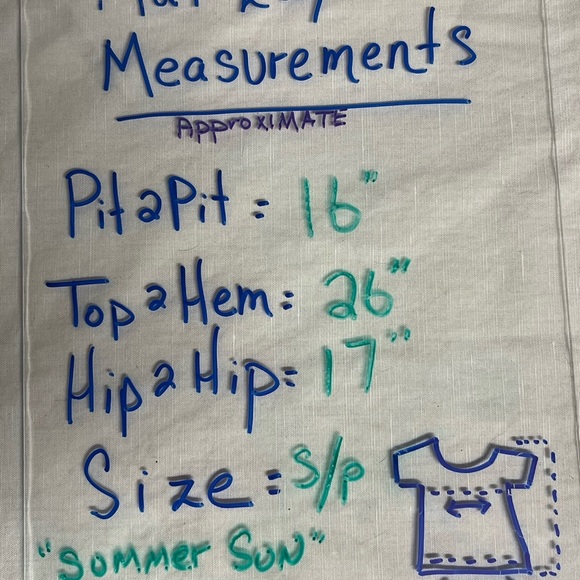 Measurements
ApproxIMATE
Pit2Pit = 16"
Top2Hem = 26"
Hip2Hip = 17"
Size = S/P
"SOMMER SUN"